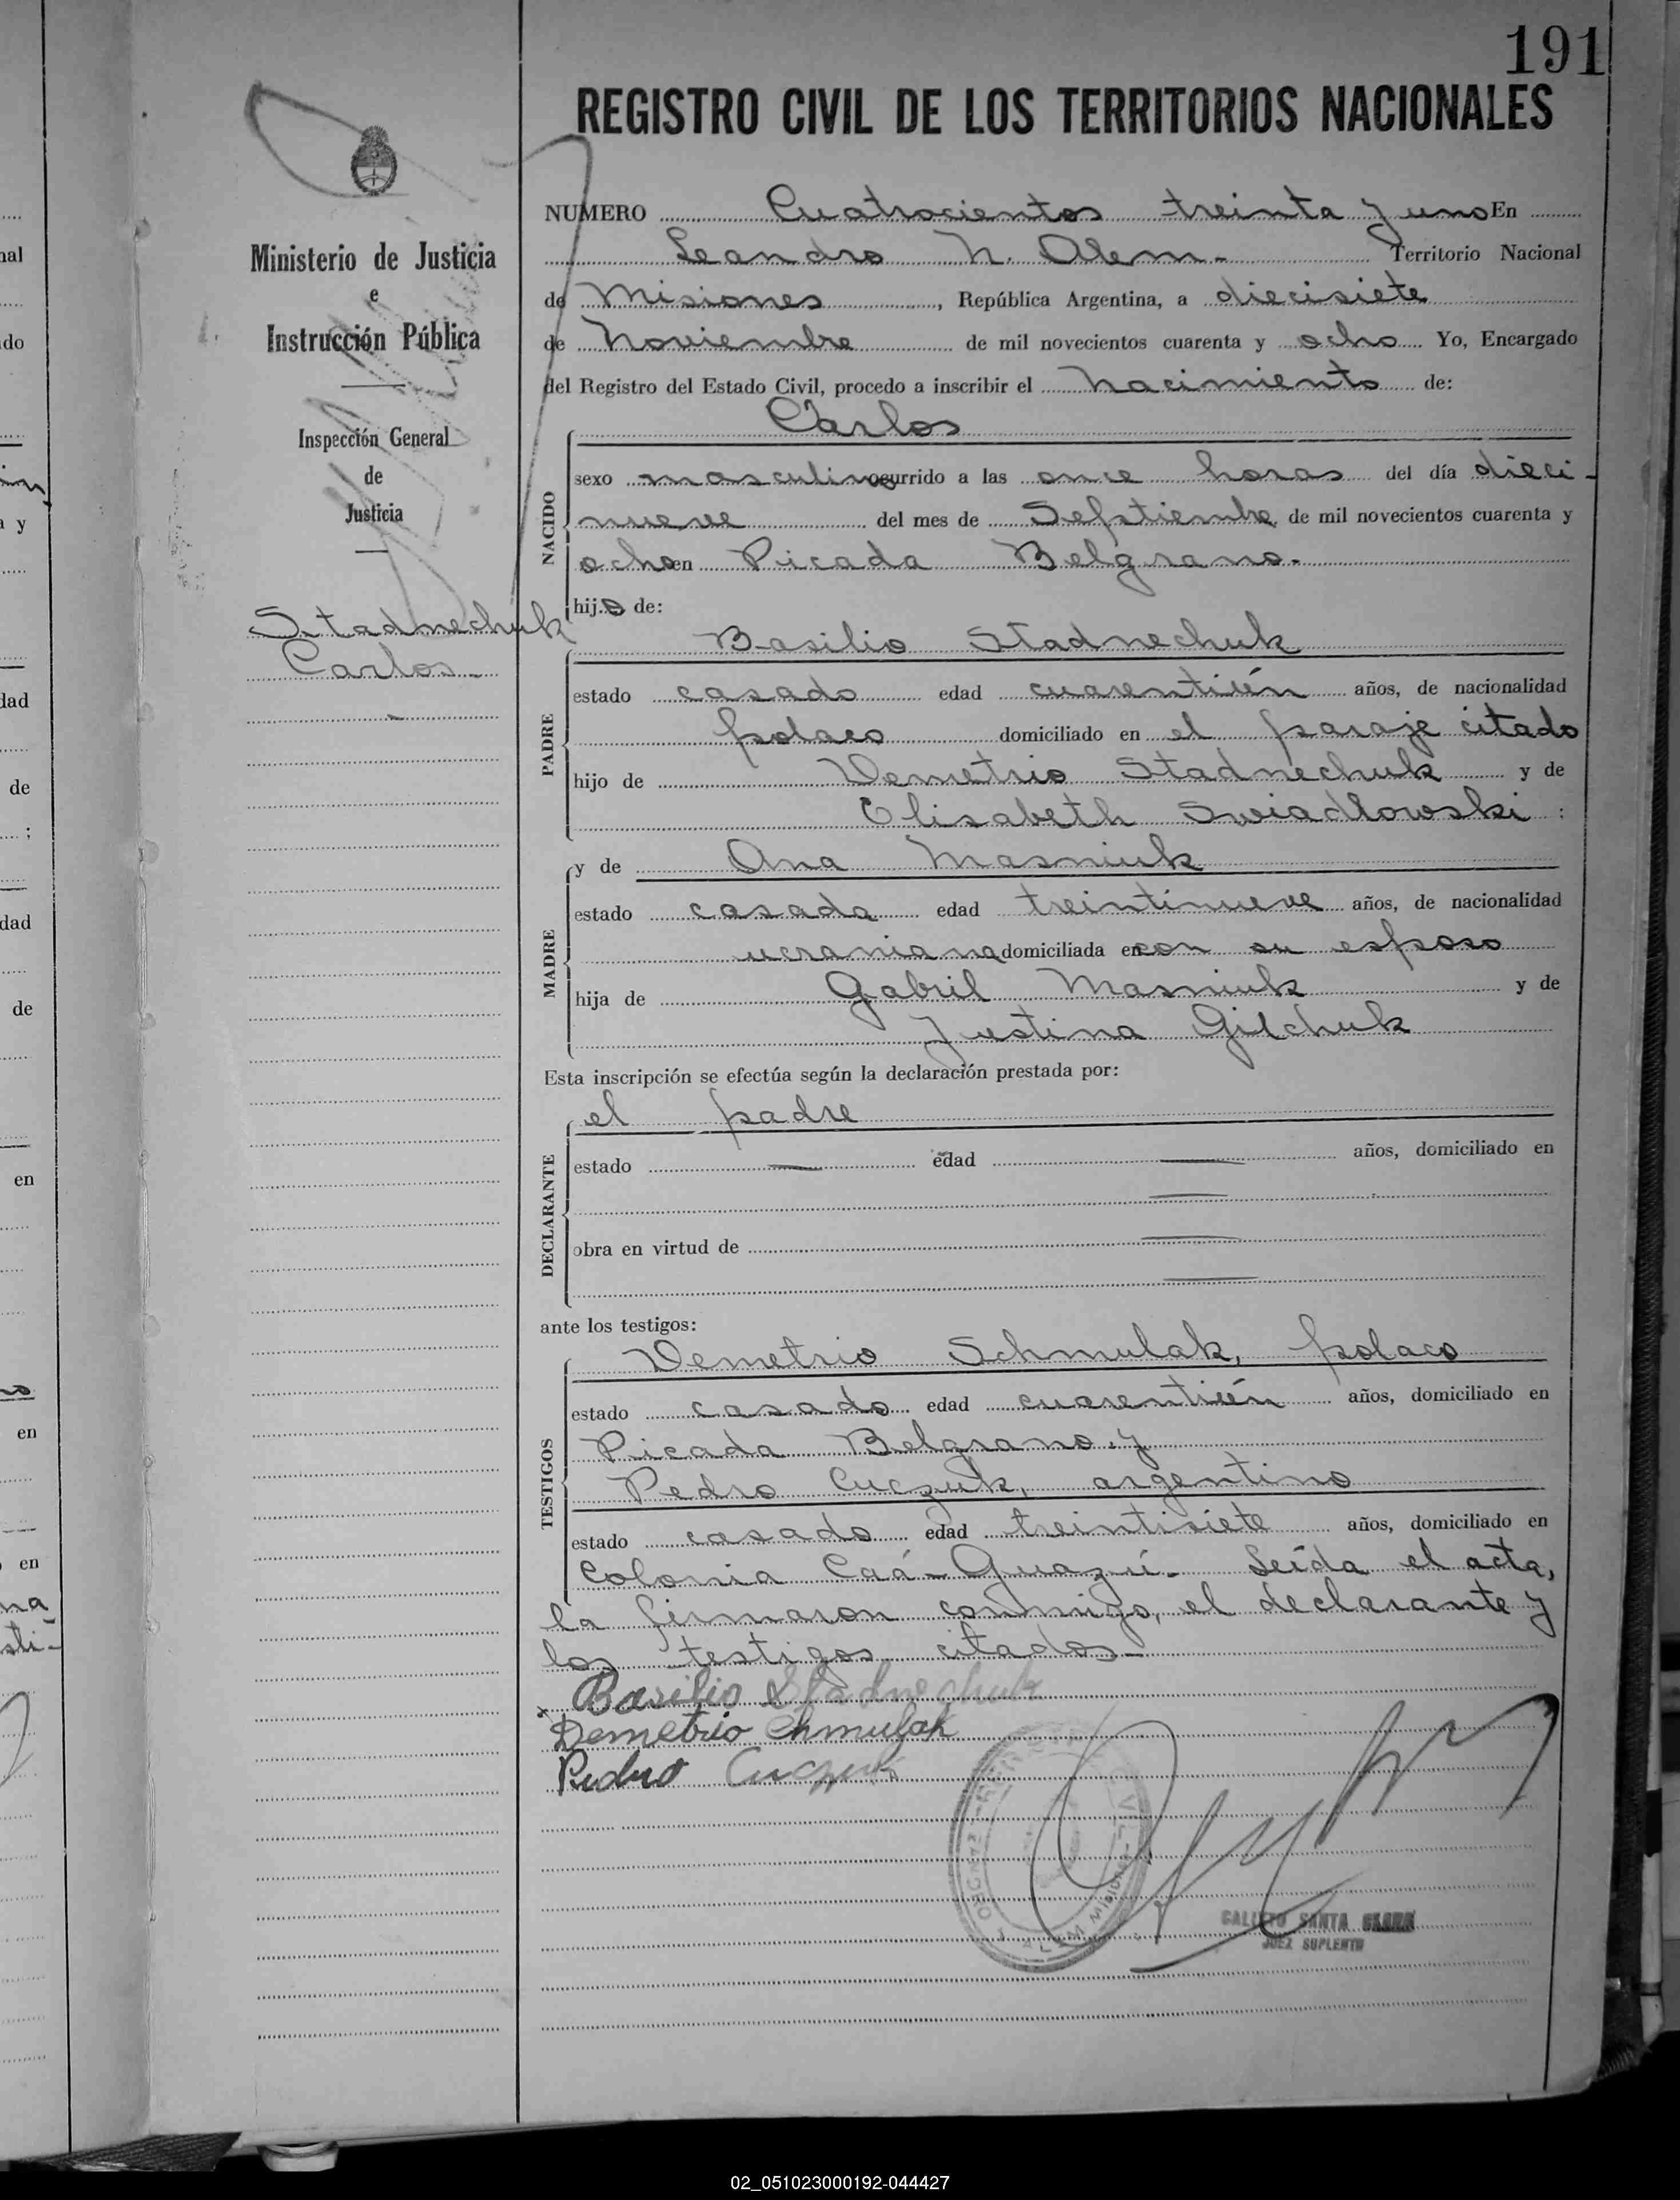 191
REGISTRO CIVIL DE LOS TERRITORIOS NACIONALES
Ministerio de Justicia
e
Instrucción Pública
Inspección General
de
Justicia
Stadnechuk
Carlos
NUMERO Cuatrocientos treinta y uno En
Leandro N. Alem.- Territorio Nacional
de Misiones, República Argentina, a diecisiete
de Noviembre de mil novecientos cuarenta y ocho Yo, Encargado
del Registro del Estado Civil, procedo a inscribir el nacimiento de:
Carlos
NACIDO
sexo masculino ocurrido a las once horas del día dieci-
nueve del mes de Septiembre de mil novecientos cuarenta y
ocho en Picada Belgrano.-
hijo de:
Basilio Stadnechuk
PADRE
estado casado edad cuarentiún años, de nacionalidad
polaco domiciliado en el paraje citado
hijo de Demetrio Stadnechuk y de
Elisabeth Swiadlowski :
y de Ana Masniuk
MADRE
estado casada edad treintinueve años, de nacionalidad
ucraniana domiciliada en con su esposo
hija de Gabril Masniuk y de
Justina Gilchuk
Esta inscripción se efectúa según la declaración prestada por:
el padre
DECLARANTE
estado — edad — años, domiciliado en
—
obra en virtud de —
—
ante los testigos:
Demetrio Schmulak, polaco
TESTIGOS
estado casado edad cuarentiún años, domiciliado en
Picada Belgrano y
Pedro Cuczuk, argentino
estado casado edad treintisiete años, domiciliado en
Colonia Caá-Guazú.- Leída el acta,
la firmaron conmigo, el declarante y
los testigos citados.-
Basilio Stadnechuk
Demetrio Chmulak
Pedro Cuczuk
SANTA
JUEZ SUPLENTE
02_051023000192-044427